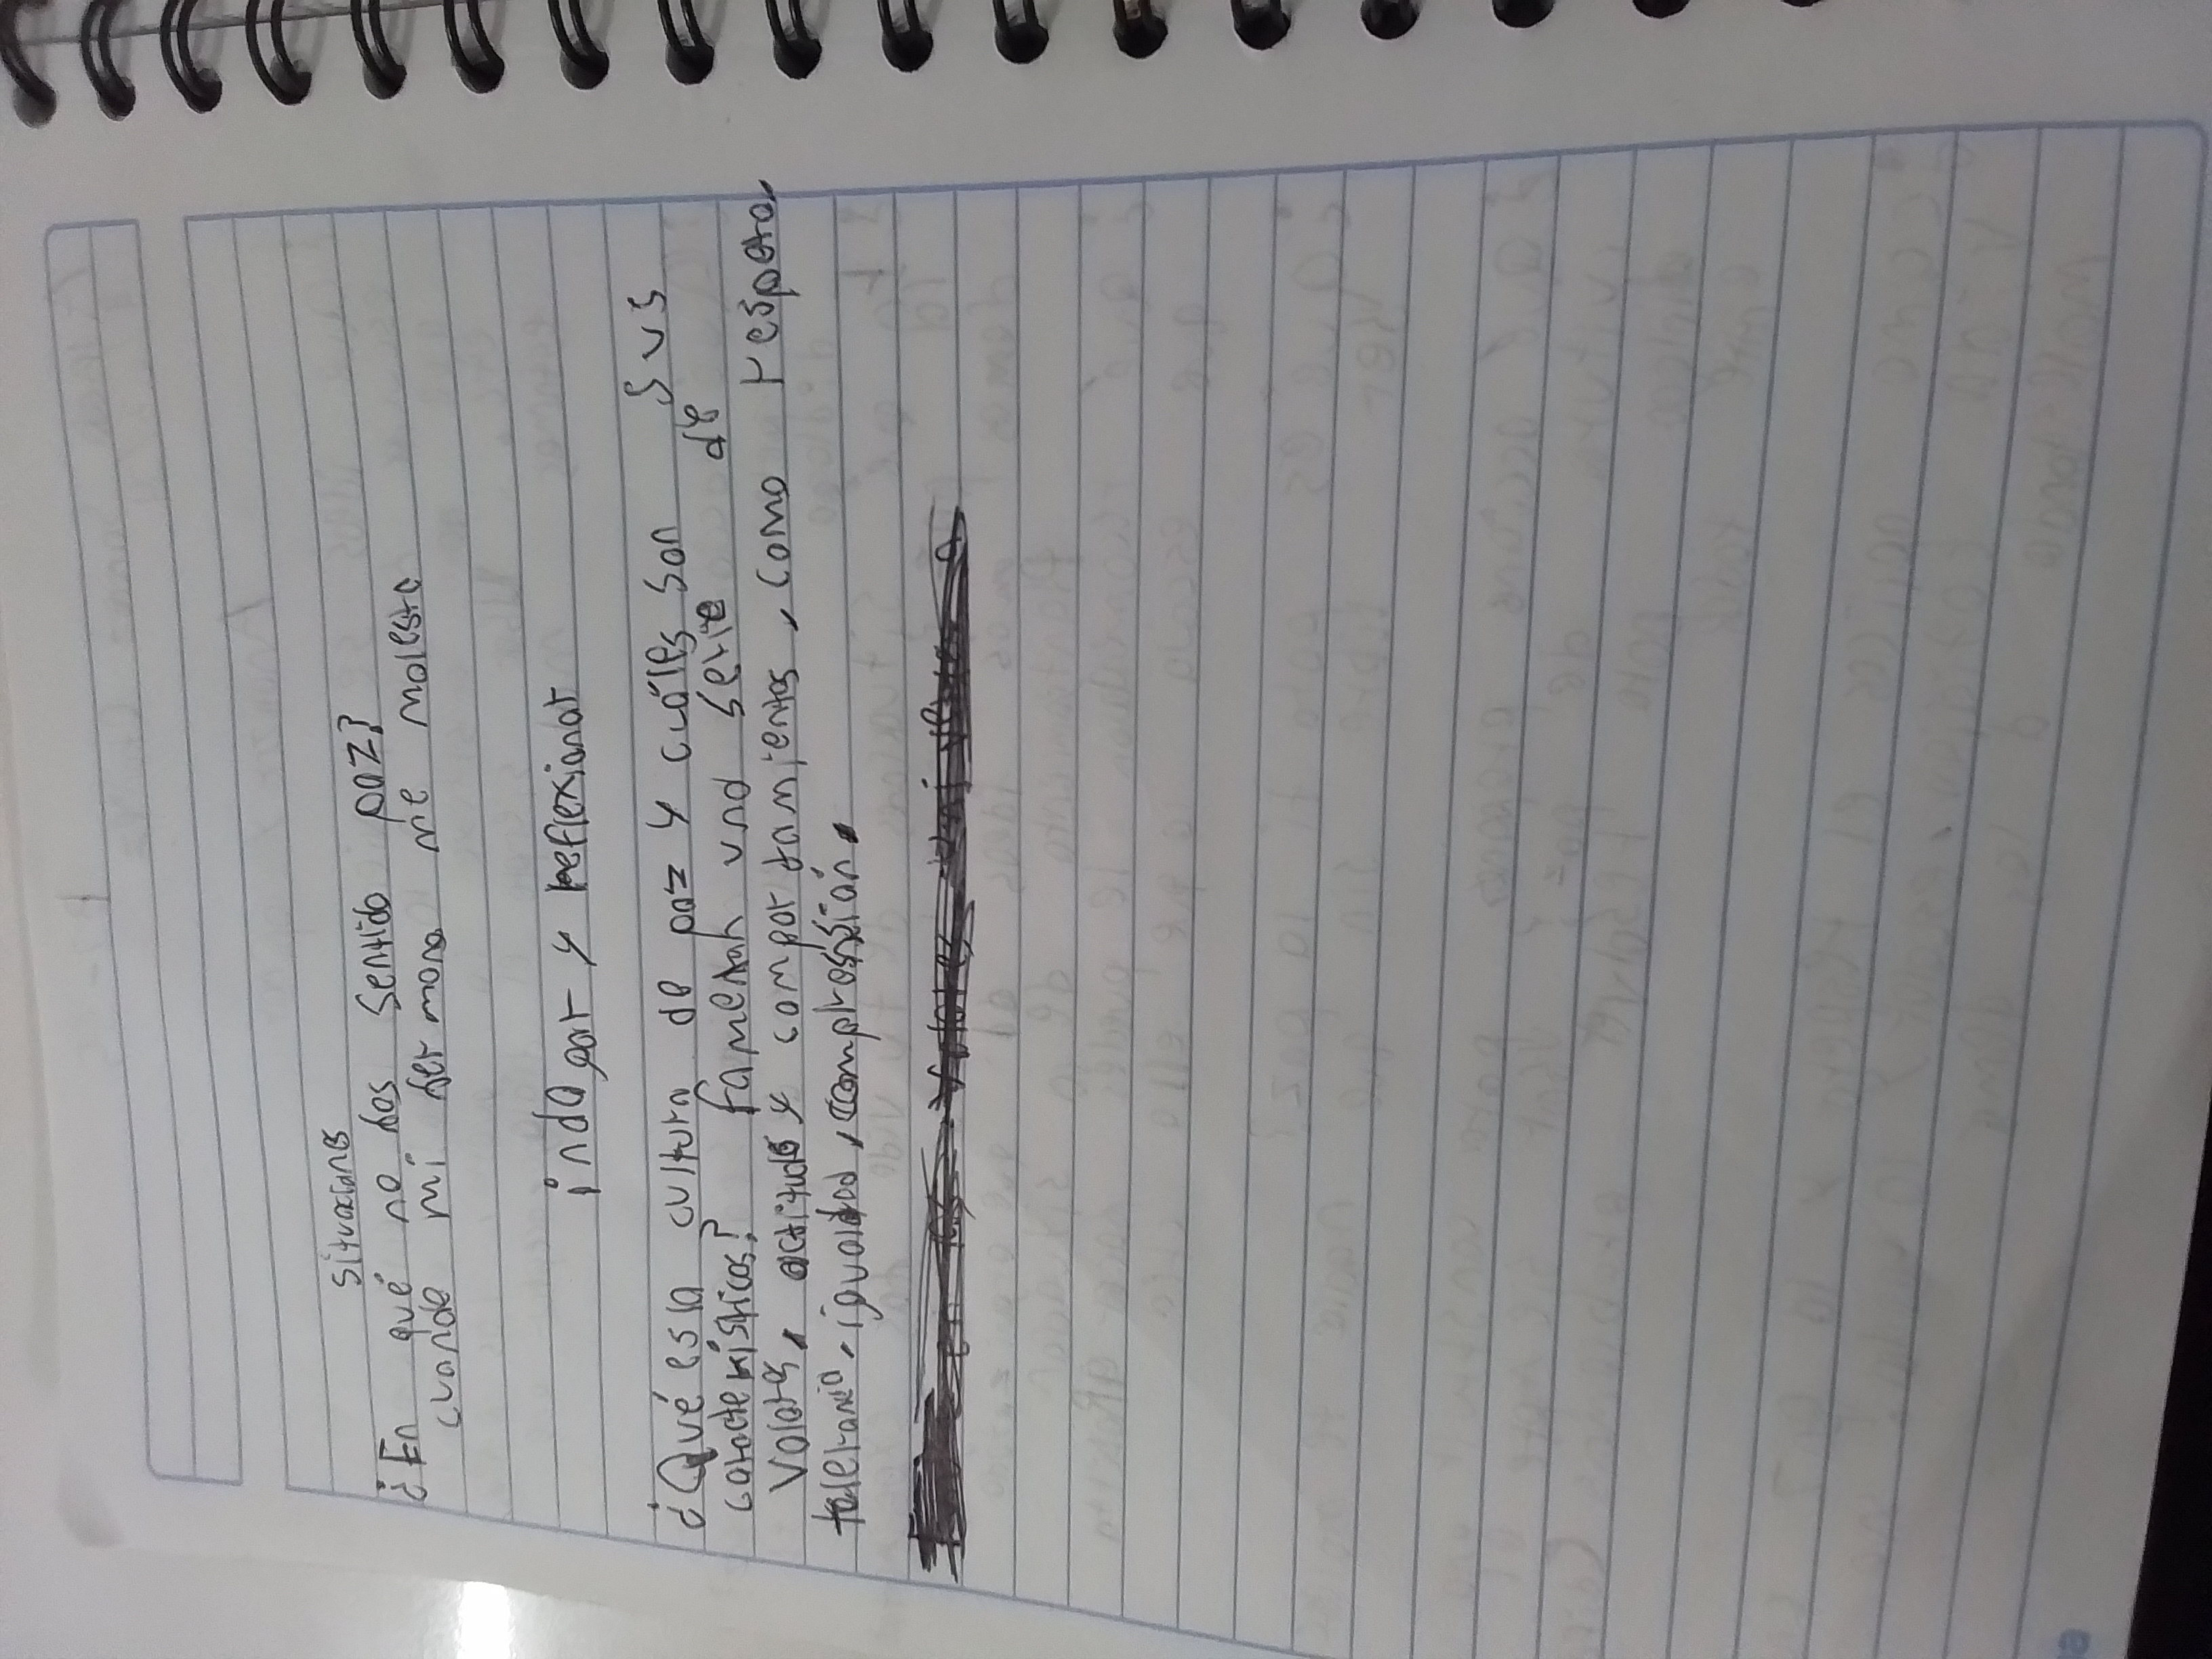 situacions
¿En qué no has sentido paz?
cuando mi hermana me molesta
indagar y reflexionar
¿Qué es la cultura de paz y cuáles son sus
caracteristicas? famentan una serie de
valores, actituds y comportamientos, como respeto,
tolerancia, igualdad, comprensión.